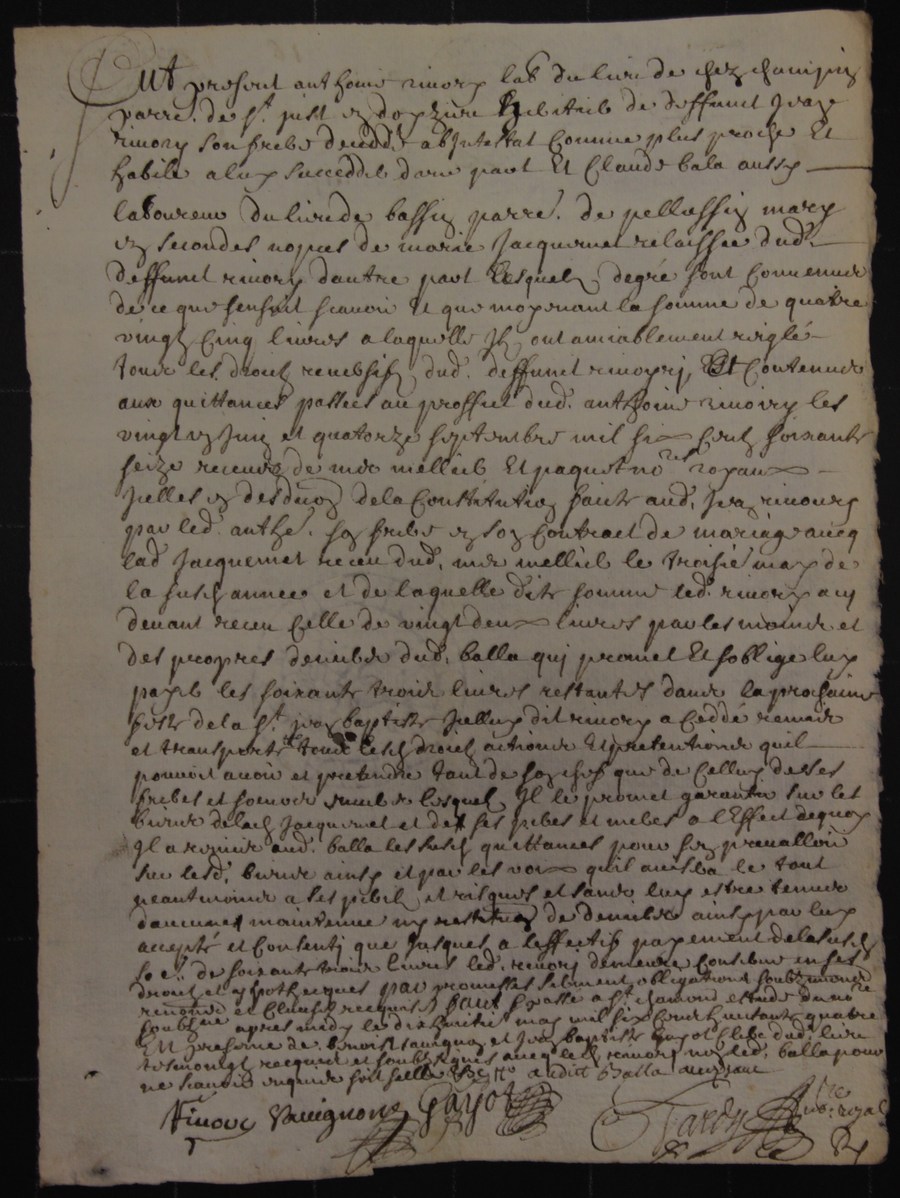 Fut present anthoine rinory lab. du lieu de chez
parre. de st. just en doyzieu de deffunt Jean
rinory son frere decedde abjntestat Comme plus proche Et
habile a luy succedder dune part Et Claude bala aussy
laboureur du lieu de bassin parre. de pellussin mary
en secondes nopces de marie Jacquemet relaissee dud.
deffunt rinory dautre part lesquels de gré sont Convenus
de ce que sensuit scavoir est que moyenant la somme de quatre
vingt Cinq livres a laquelle Ils ont amiablement reiglé
tous les droicts dud. deffunt rinory, Et Contenus
aux quittances passées au proffict dud. anthoine rinory les
vingt un Juin et quatorze septembre mil six Cent soixante
seize receues de mes mellier Et paquet nores. royaux
Jcelles en de la Constitution faicte aud. Jean rinory
par led. anthe. son frere en son Contract de mariage avecq
lad. Jacquemet receu dud. mes mellier le troisie. may de
la susd. annee et de laquelle ditte somme led. rinory a cy
devant receu Celle de vingt deux livres par les mains et
des propres deniers dud. balla qui promet Et soblige luy
payer les soixante trois livres restantes dans la prochaine
feste de la st. jean baptiste Jcelluy dit rinory a Ceddé remis
et transporté tous lesd. droicts actions Et pretentions quil
pouvoit avoir et pretendre tant de son chef que de Celluy de ses
freres et soeurs lesquels Il le promet garantir sur les
biens de lad. Jacquemet et de ses peres et meres a l'Effect dequoy
Il a remis aud. balla les susd. quittances pour sen prevalloir
sur lesd. biens ainsy et par les voix quil advisera le tout
neantmoins a ses perils et risques et sans luy estre tenus
daucune maintenue ny restitution de deniers ainsy par luy
accepté et Consenty que Jusques a leffectif payement de la susd.
so.e. de soixante trois livres led. rinory demeure Conservé en ses
droicts et hypotheques par promesses serment obligations soubzmissions
renonces et Clauses requises faict et passé a st. chamond estude du nore.
soubzne. apres midy le dixhuitie. may mil six Cens huictante quatre
En presence de benoist et Jean baptiste gayot Clerc dud. lieu
tesmoingts requis et soubzsignés avecq led. rinory non led. balla pour
ne scavoir
rinory gayot
Tardy nore. royal